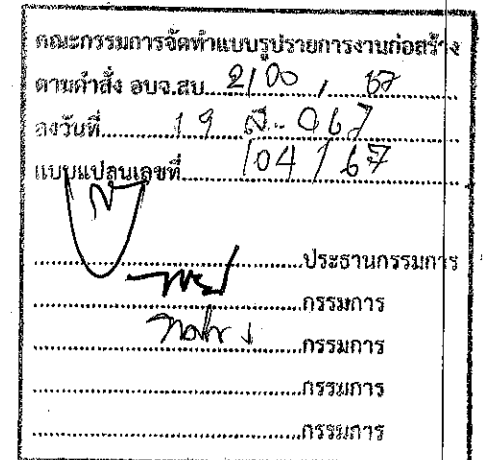 คณะกรรมการจัดทำแบบรูปรายการงานก่อสร้าง
ตามคำสั่ง อบจ.สบ. 2100 / 67
ลงวันที่ 19 ส.ค. 67
แบบแปลนเลขที่ 104 / 67
ประธานกรรมการ
กรรมการ
กรรมการ
กรรมการ
กรรมการ